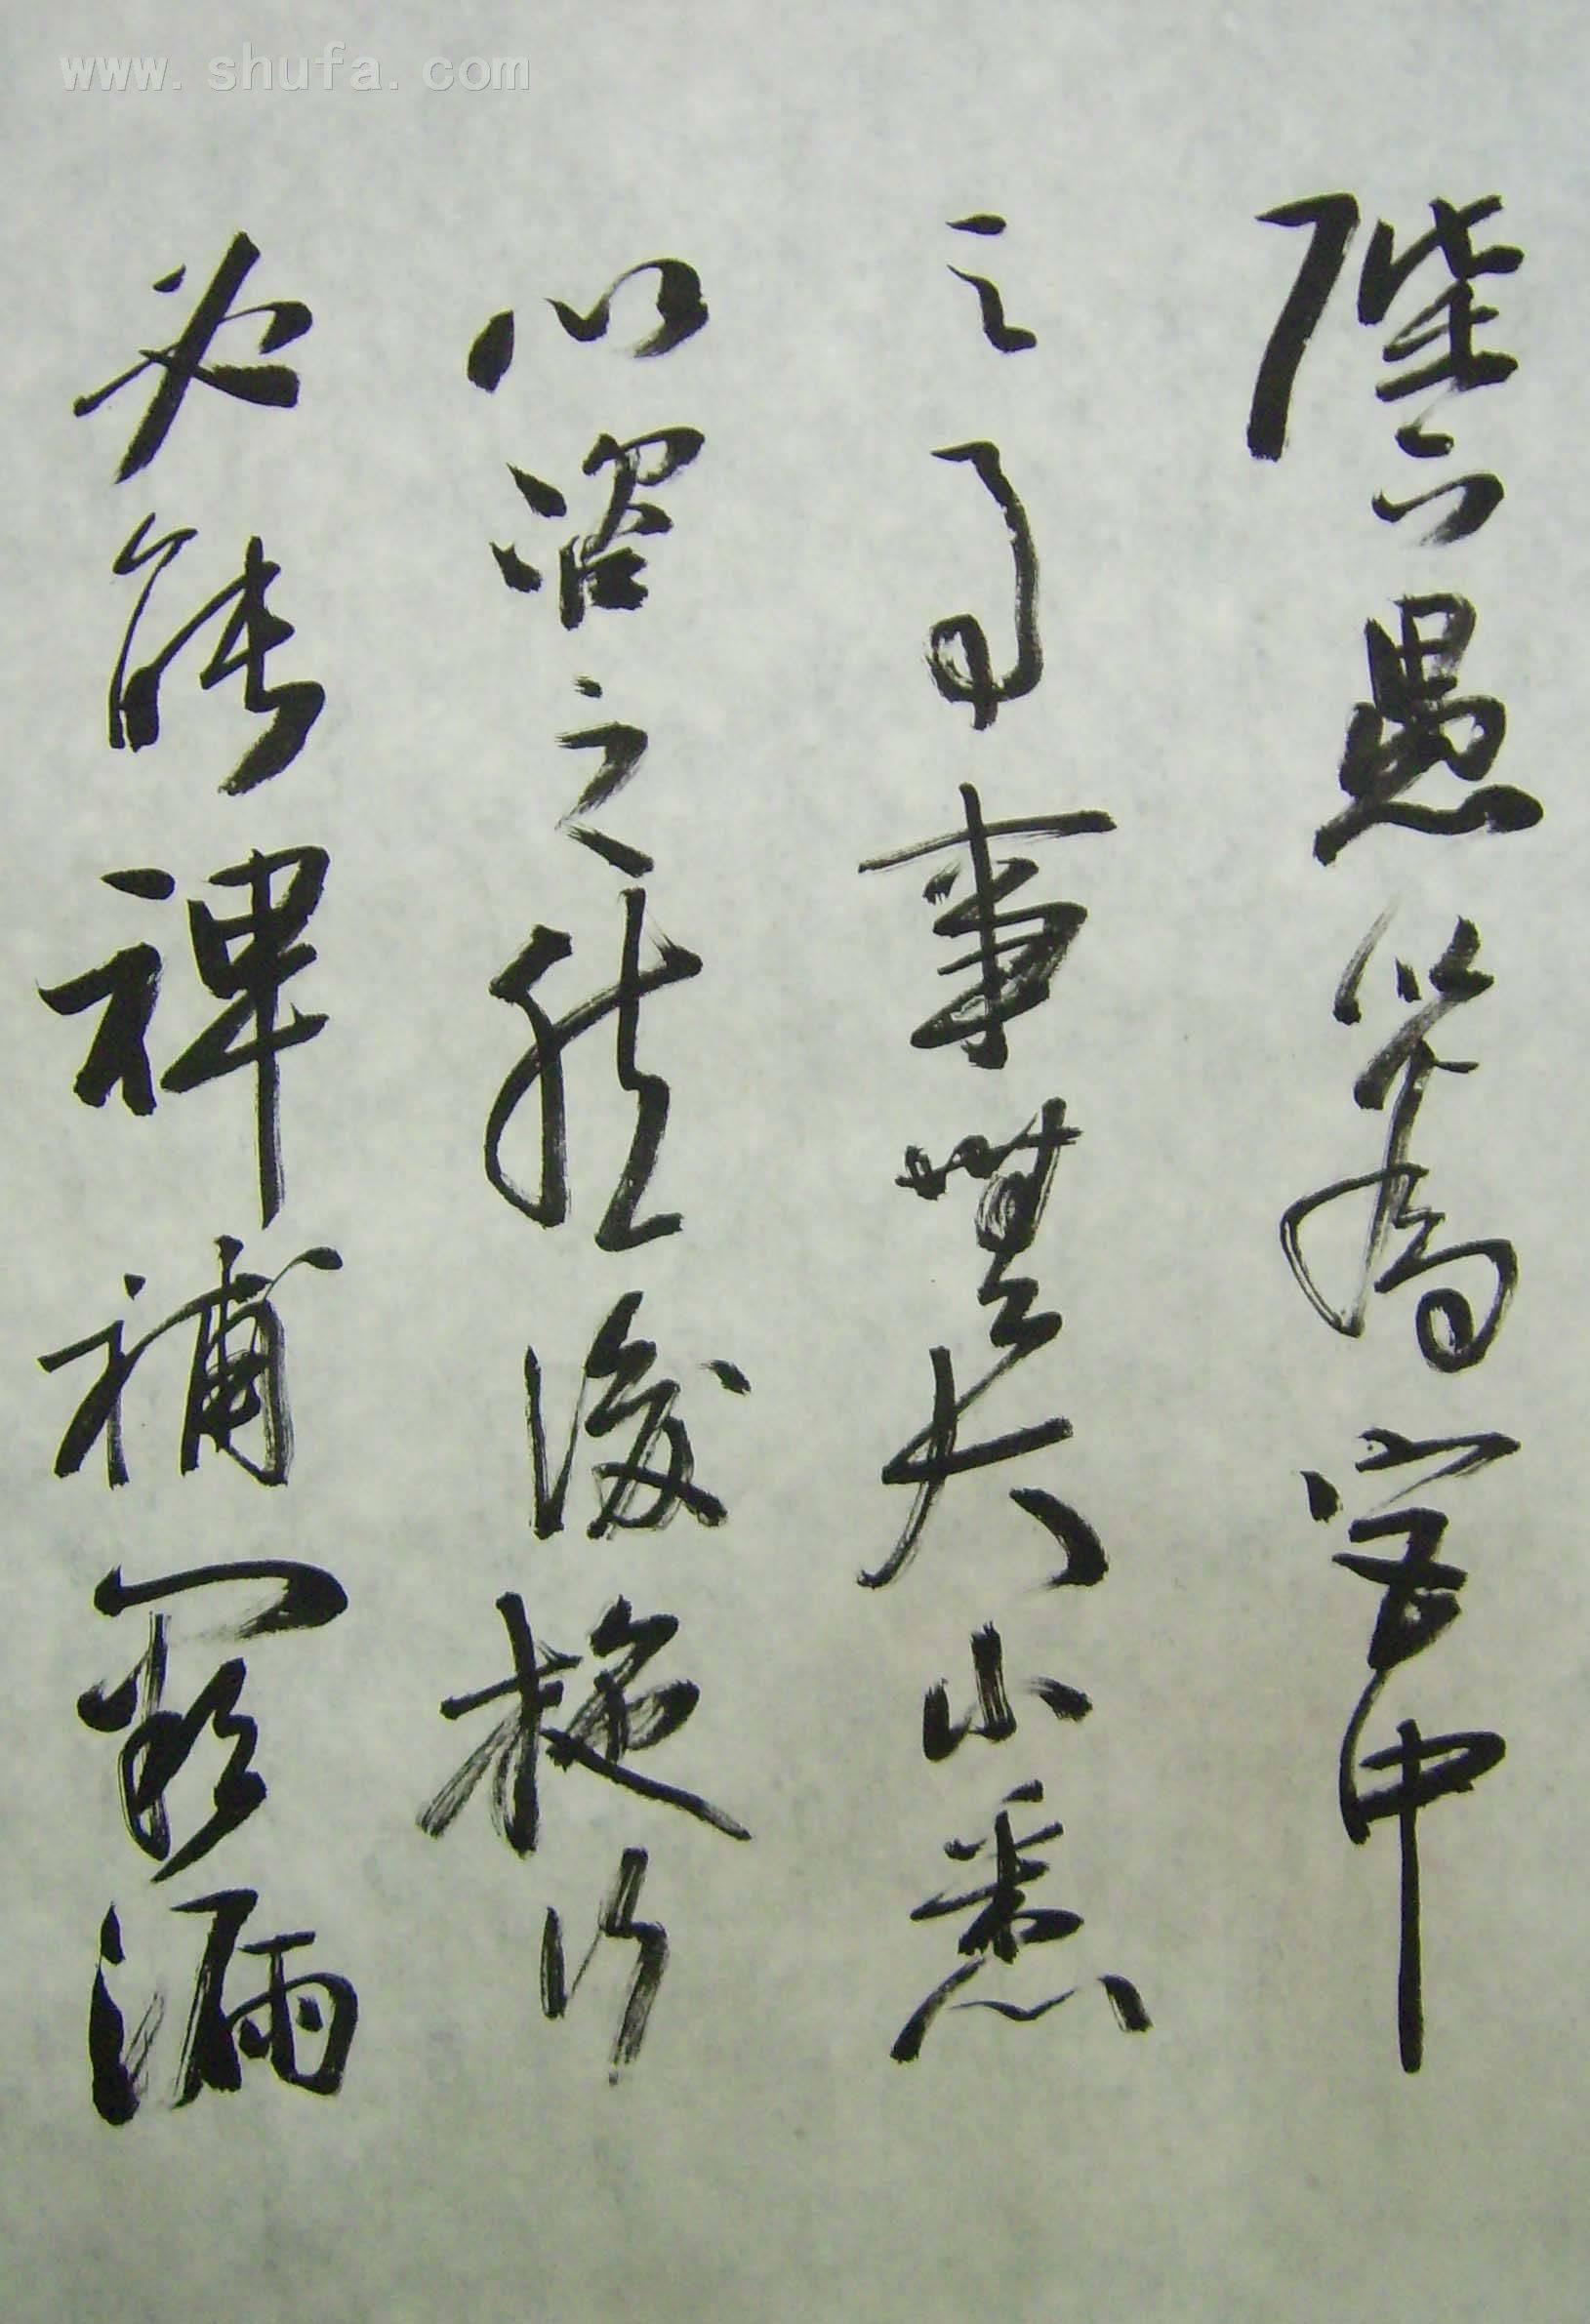 www.shufa.com
陛下愚以為宮中
之事事無大小悉
以咨之然後施行
必能裨補闕漏